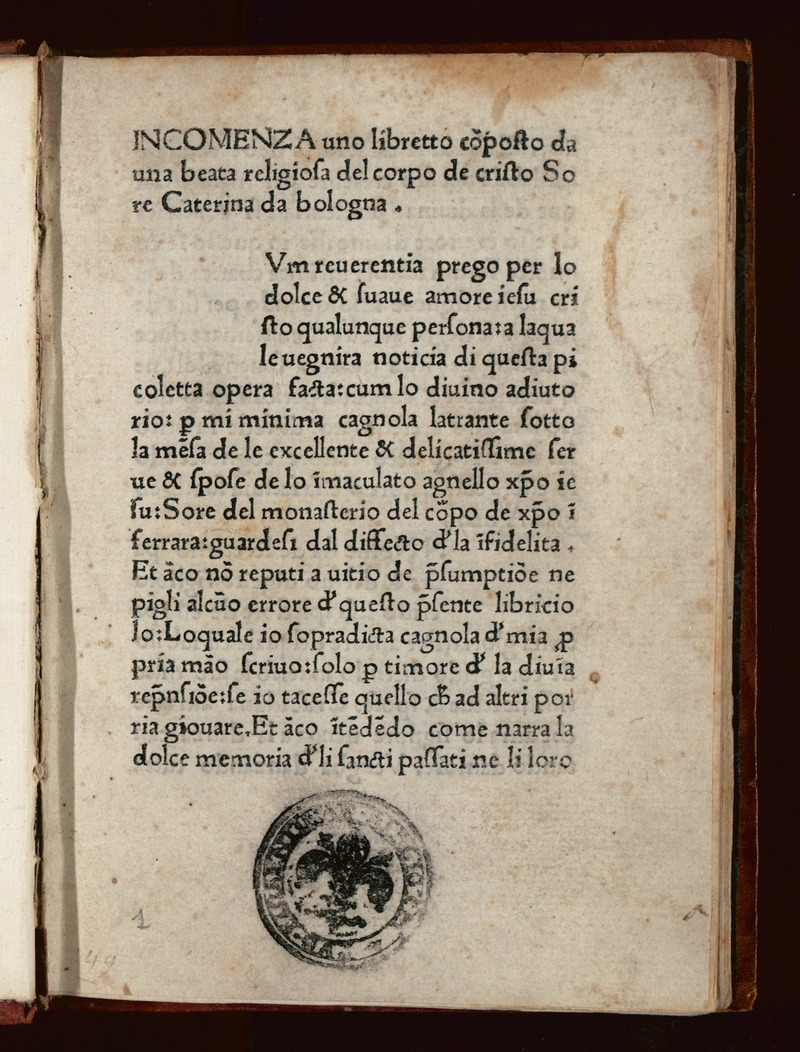 INCOMENZA uno libretto cõposto da
una beata religiosa del corpo de cristo So
re Caterina da bologna .
Vm reuerentia prego per lo
dolce & suaue amore iesu cri
sto qualunque persona:a laqua
le uegnira noticia di questa pi
coletta opera facta:cum lo diuino adiuto
rio: ꝑ mi minima cagnola latrante sotto
la mẽsa de le excellente & delicatissime ser
ue & spose de lo ĩmaculato agnello xp̃o ie
su:Sore del monasterio del cõpo de xp̃o ĩ
ferrara:guardesi dal diffecto d' la ĩfidelita .
Et ãco nõ reputi a uitio de p̃sumptiõe ne
pigli alcũo errore d' questo p̃sente libricio
lo:Loquale io sopradicta cagnola d' mia ꝓ
pria mão scriuo:solo ꝑ timore d' la diuĩa
rep̃nsiõe:se io tacesse quello ch̃ ad altri por
ria giouare.Et ãco ĩtẽdẽdo come narra la
dolce memoria d' li sancti passati ne li loro
1
49